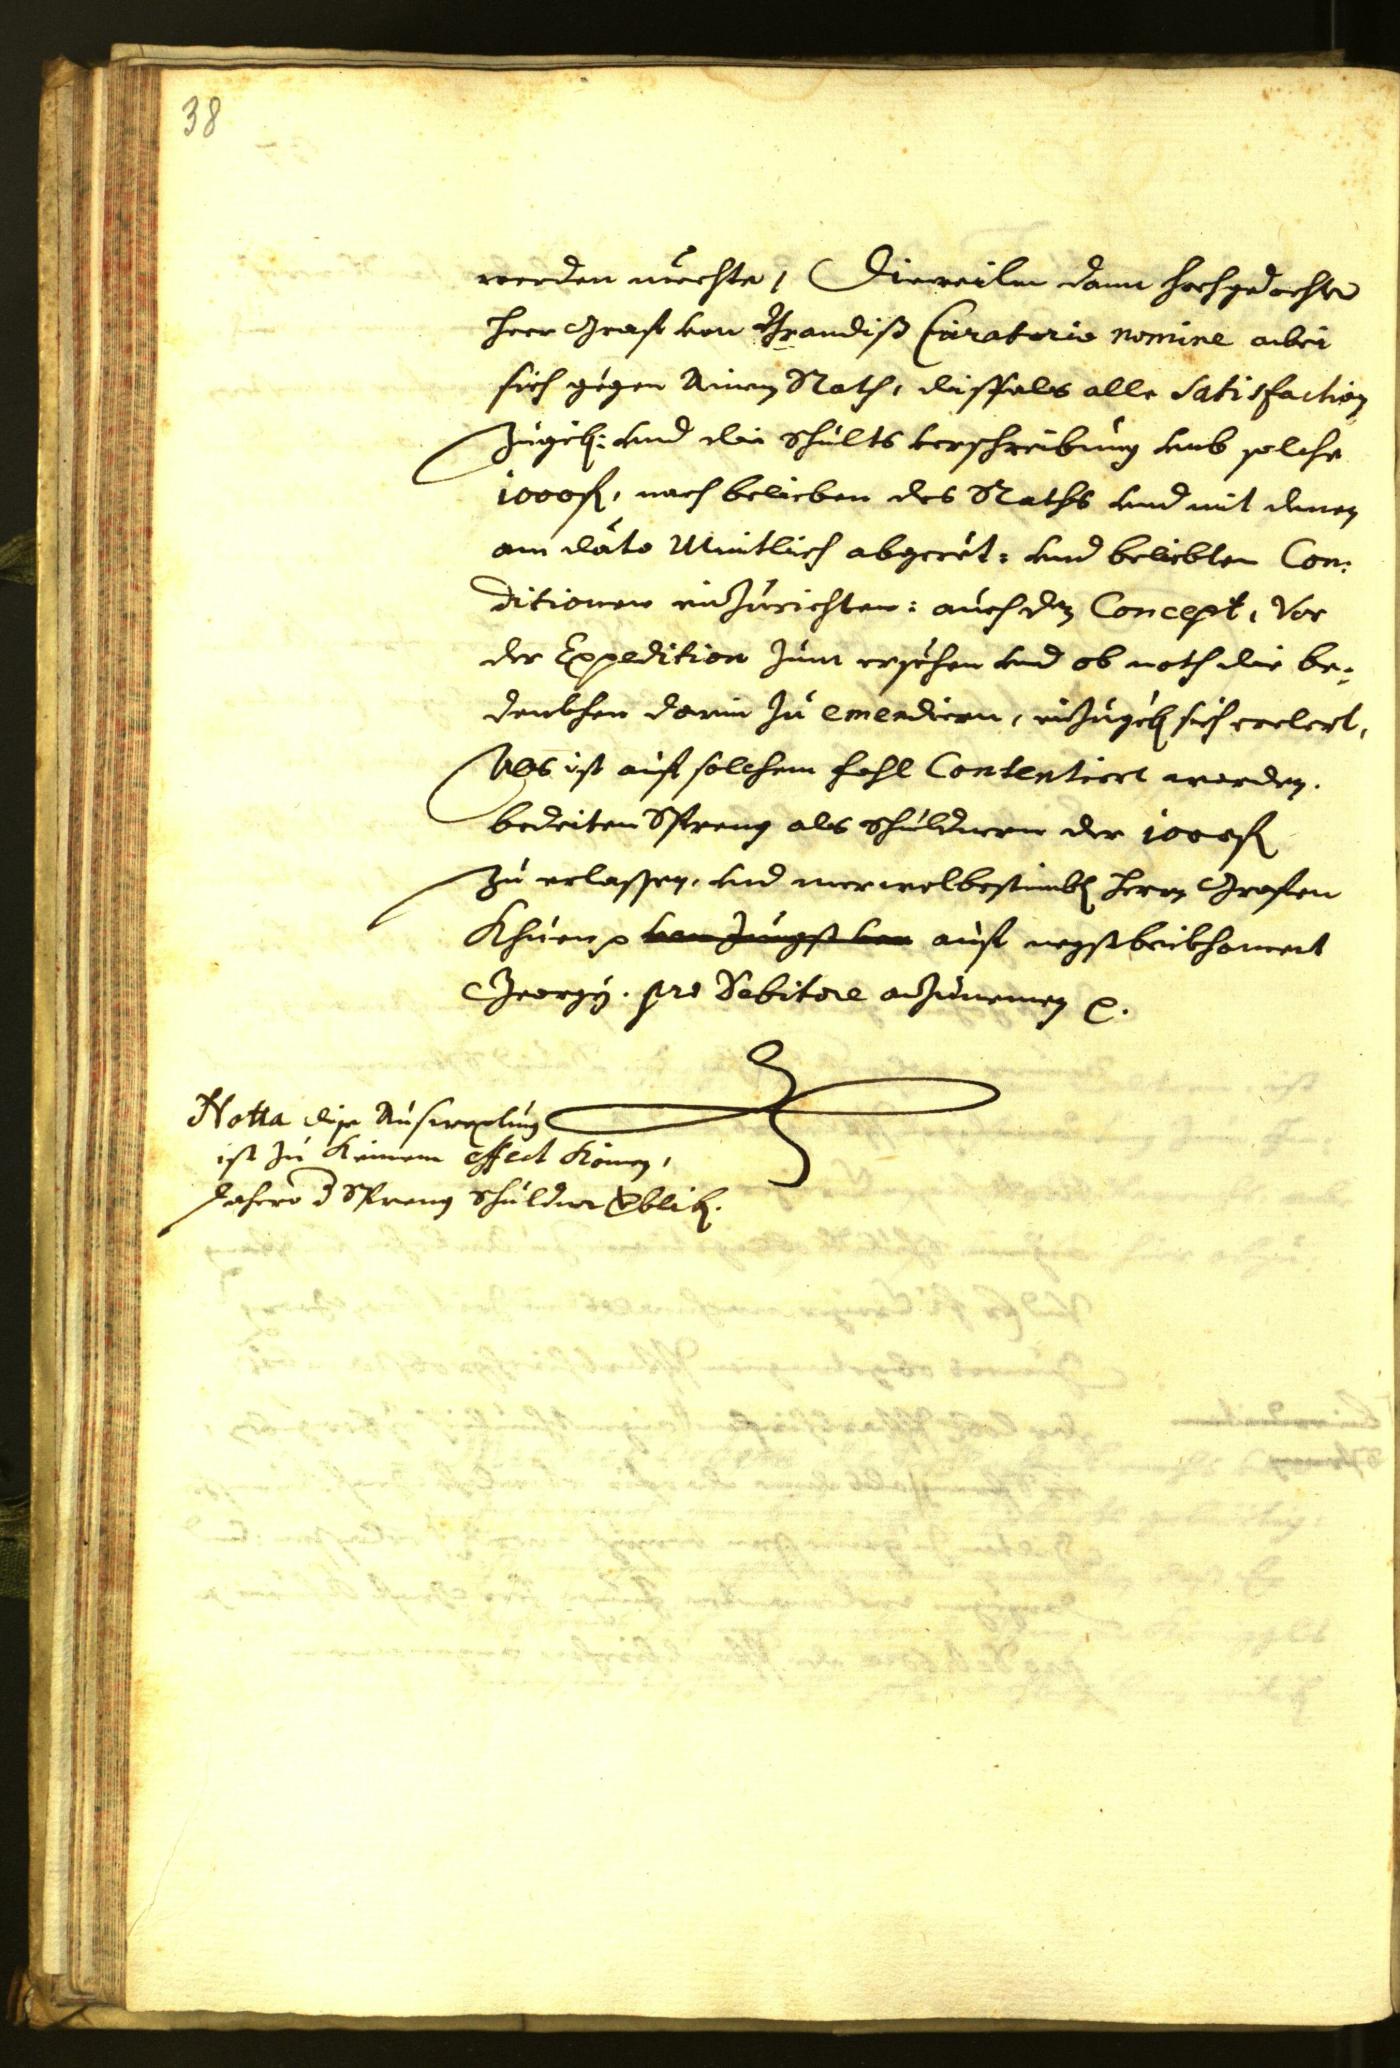 38
werden mechte, Dieweilen dann hochgedachter
Herr Graf von Brandiß Curatorio nomine aber
sich gegen Ainen Rath, dißfals alle Satisfaction
zugeb: und die schults verschreibung umb solche
1000 fl, nach belieben des Raths und mit denen
am dato Mintlich abgeret: und beliebten Con:
ditionen einzurichten: auch dz Concept, vor
der Expedition zum ersehen und ob noth die be:
denkhen darin zu emendiern, einzugeb sich erclert,
Als ist auf solchem fahl Contentiert worden.
bedeiten Spreng als schuldnern der 1000 fl
zu erlassen, und merwolbestimbt Herrn Grafen
Khuen p von jungst von auf negstbeikhoment
Georgy. pro Debitore anzunemen p.
Notta dise Auswexlung
ist zu keinem effect komen,
dahero d Spreng schuldner verblib.